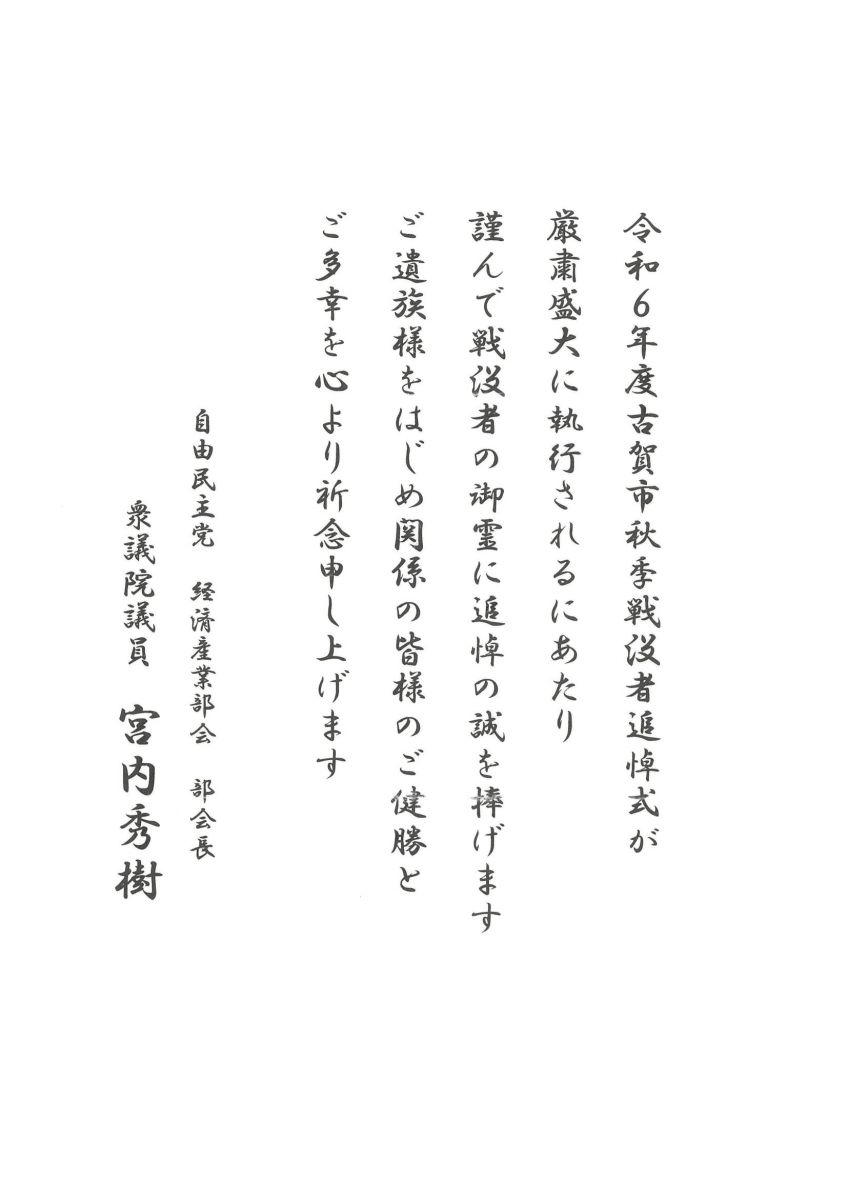 令和6年度古賀市秋季戦没者追悼式が
厳粛盛大に執行されるにあたり
謹んで戦没者の御霊に追悼の誠を捧げます
ご遺族様をはじめ関係の皆様のご健勝と
ご多幸を心より祈念申し上げます
自由民主党 経済産業部会 部会長
衆議院議員 宮内秀樹